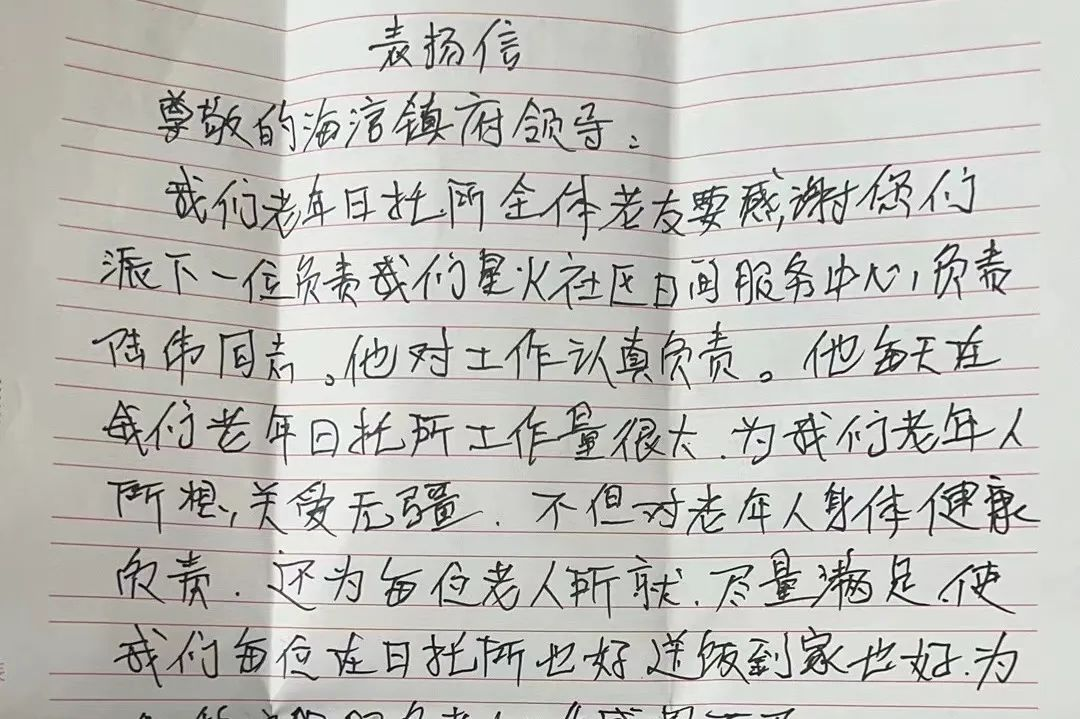 表扬信
尊敬的海湾镇府领导：
我们老年日托所全体老友要感谢您们
派下一位负责我们星火社区日间服务中心，负责
陆伟同志。他对工作认真负责。他每天在
我们老年日托所工作量很大、为我们老年人
所想，关爱无疆、不但对老年人身体健康
负责、还为每位老人所就、尽量满足、使
我们每位在日托所也好送饭到家也好、为